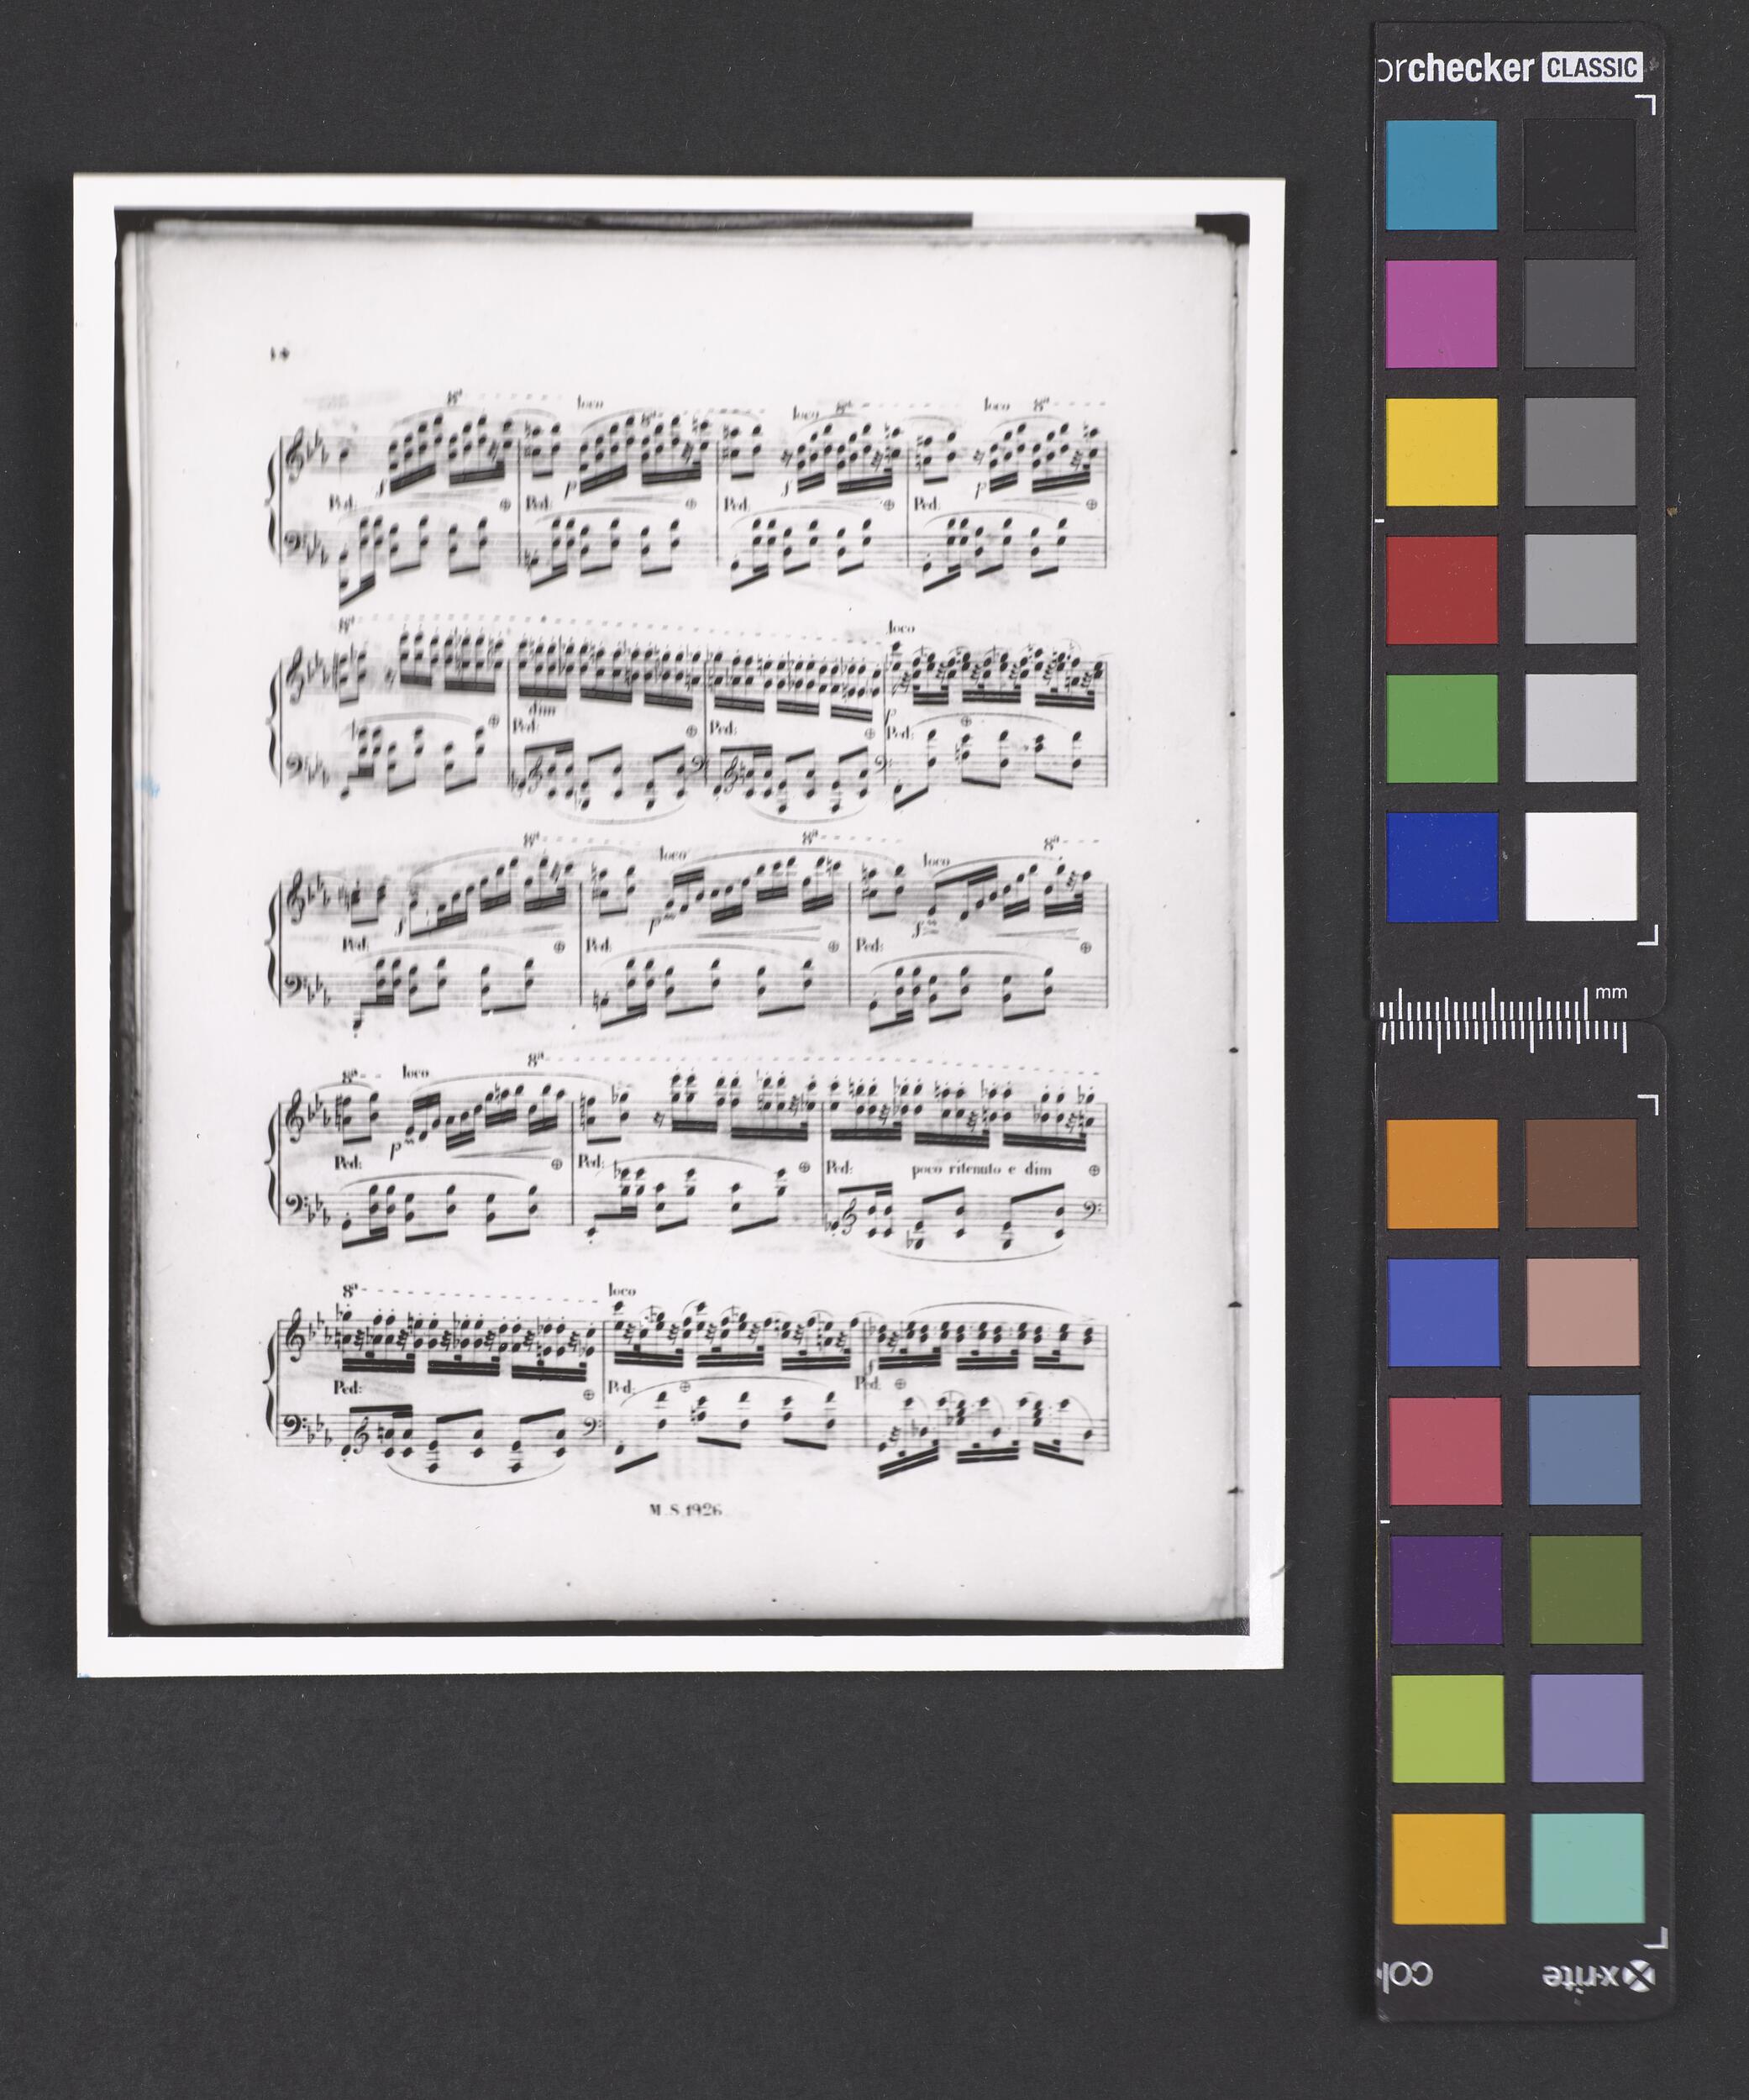 orchecker CLASSIC
8ª loco 8ª loco 8ª loco 8ª
f p f p
Ped: Ped: Ped: Ped:
8ª loco
dim
p
Ped: Ped: Ped:
8ª loco 8ª loco 8ª
f p f
Ped: Ped: Ped:
mm
8ª loco 8ª
p
Ped: Ped: Ped: poco ritenuto e dim
8ª loco
f
Ped: Ped: Ped:
M. S. 1926.
x-rite
col